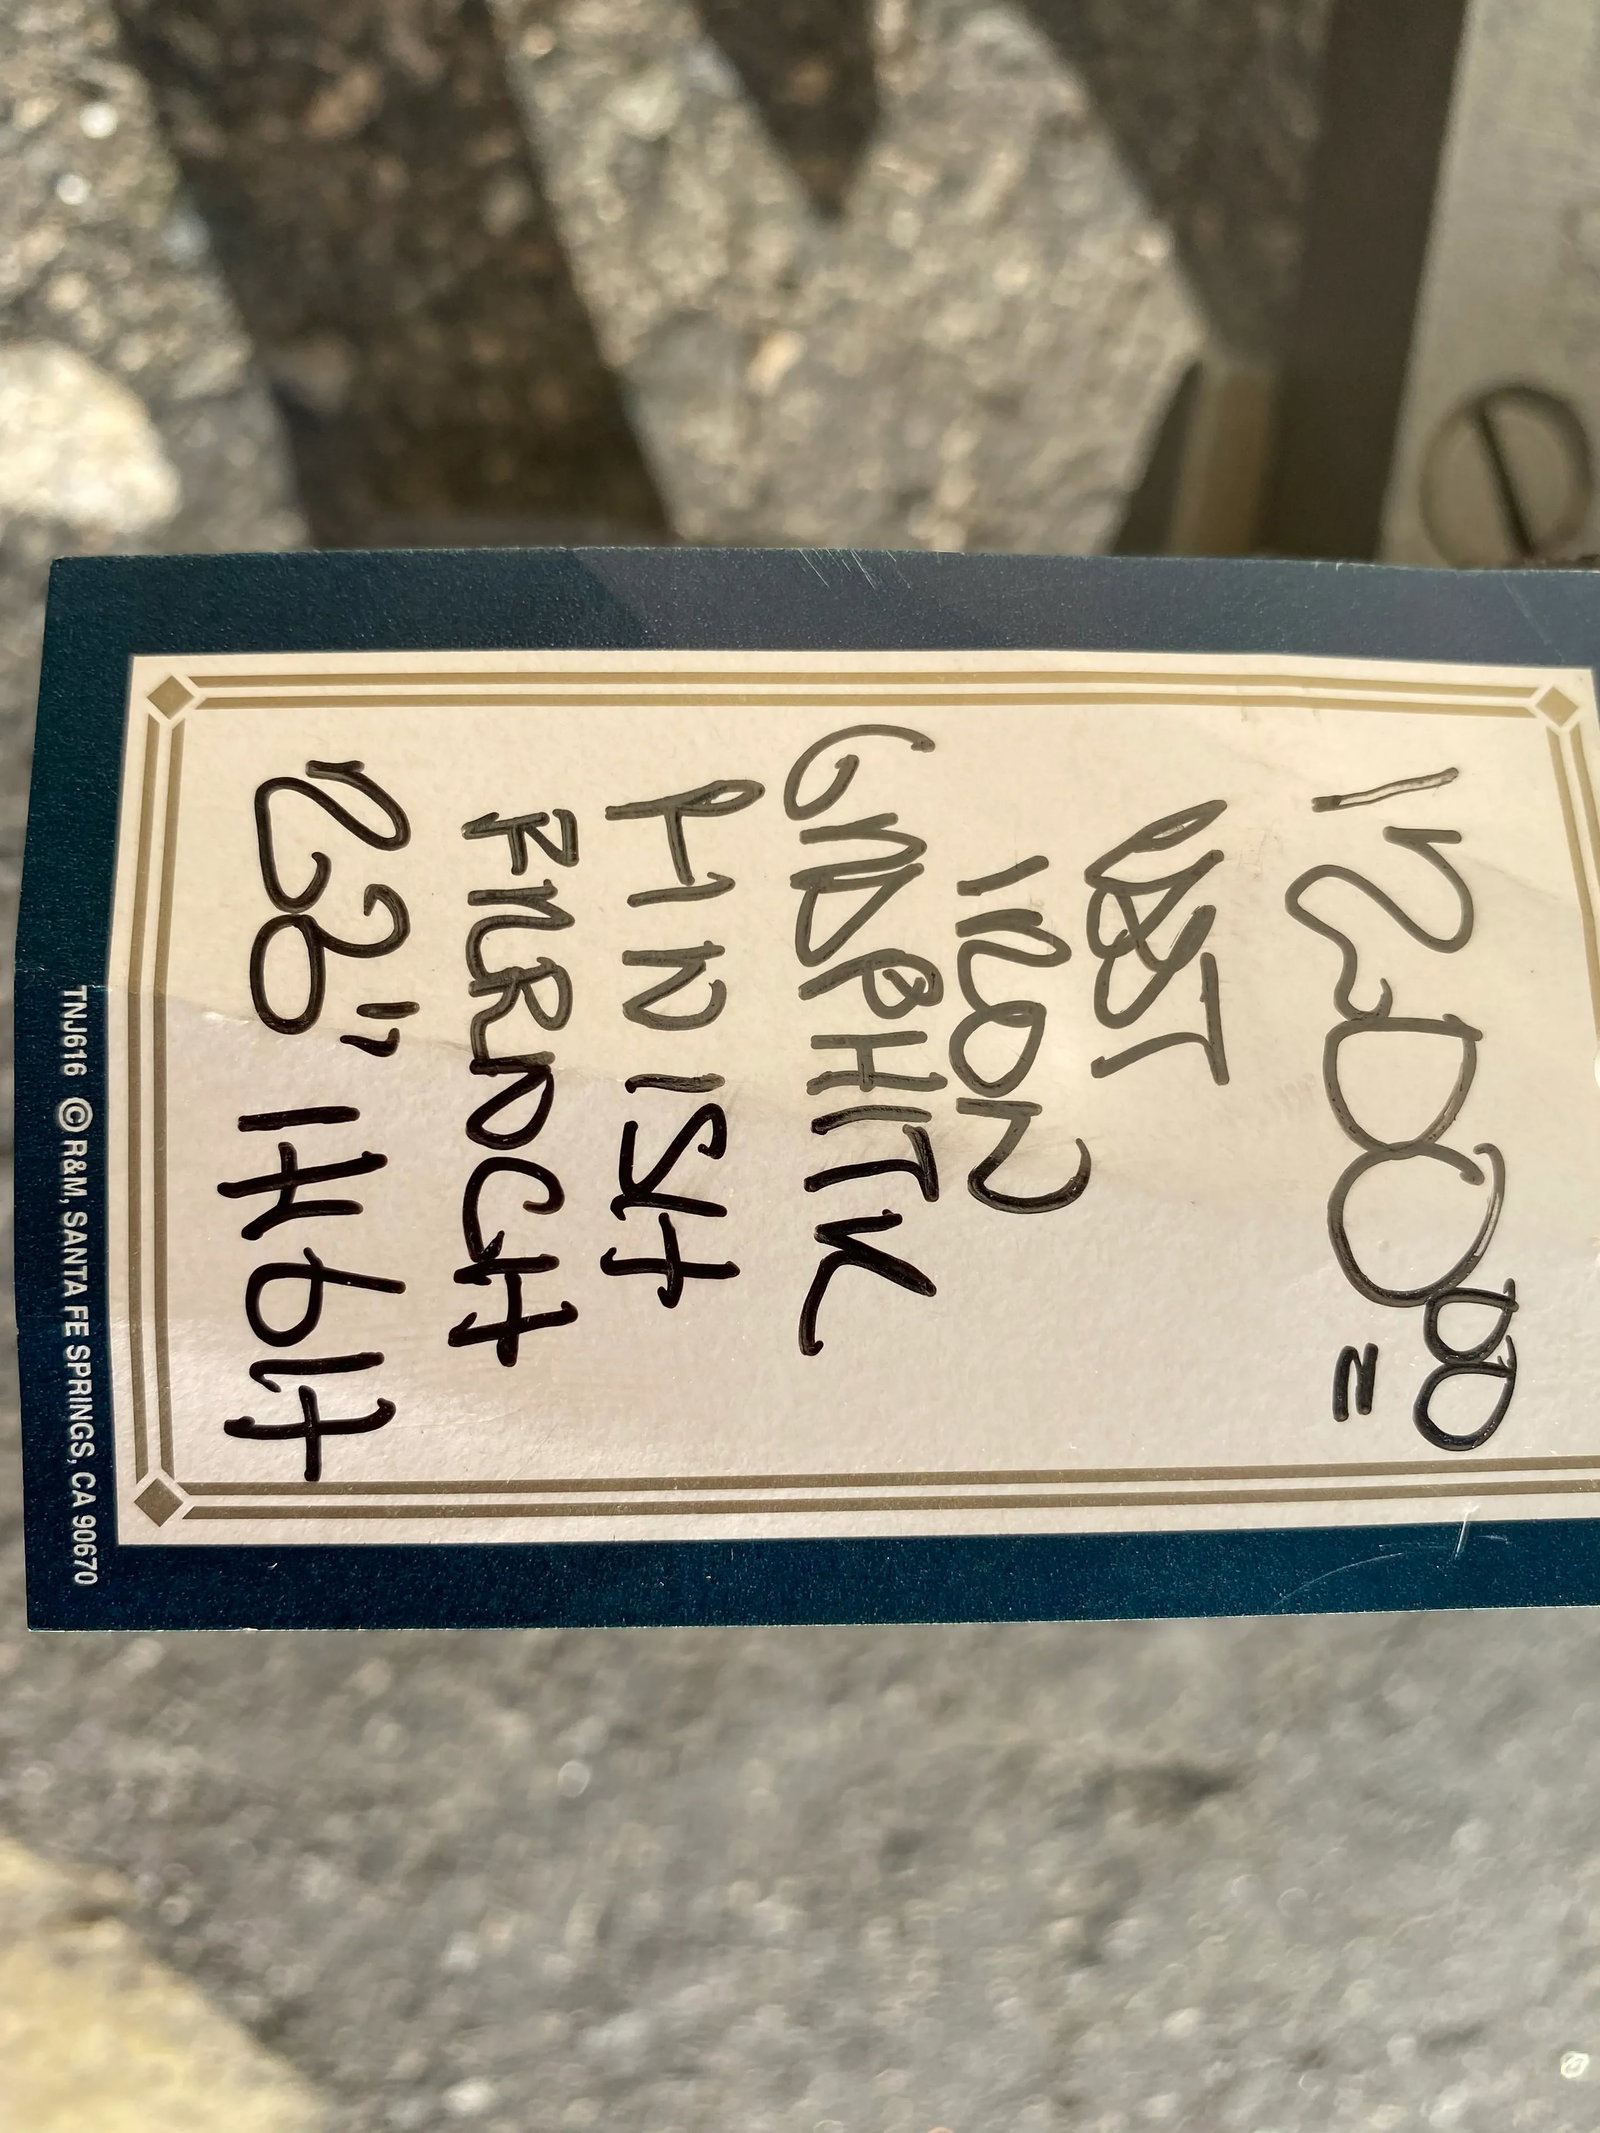 1200 00
CAST
IRON
GRAPHITE
FINISH
FRENCH
28" HIGH
TNJ616 © R&M, SANTA FE SPRINGS, CA 90670